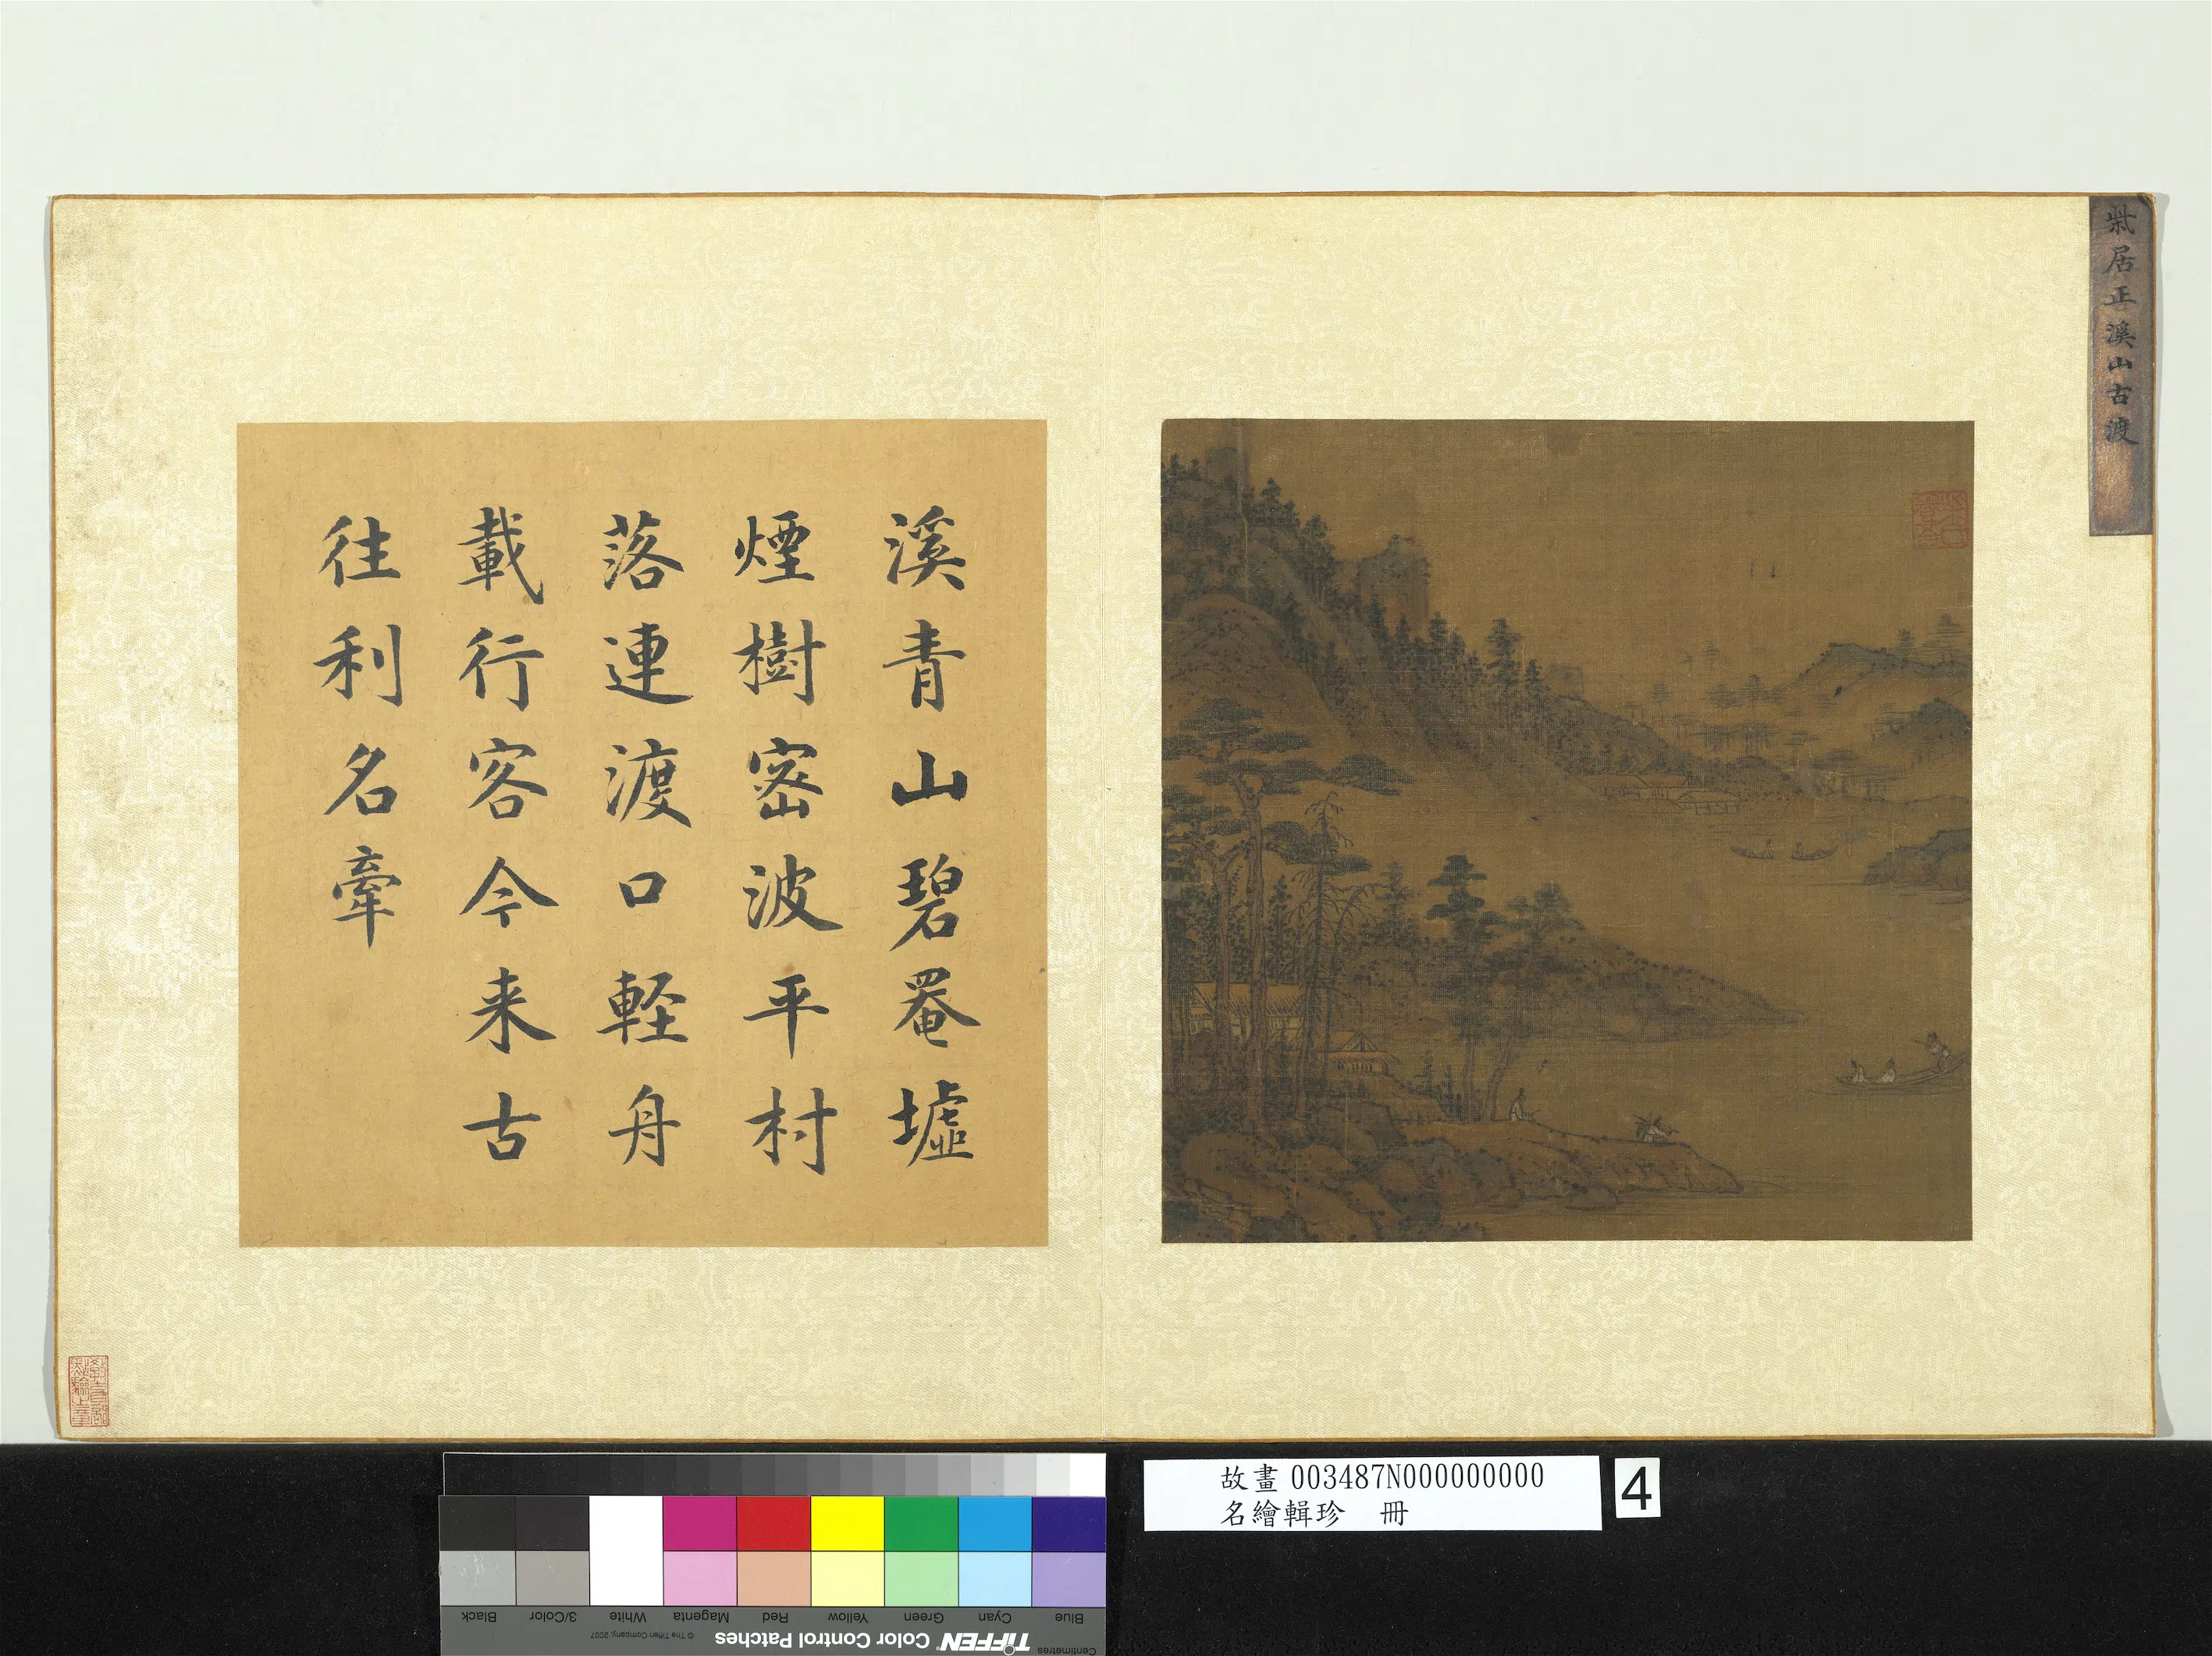 柴居正溪山古渡
溪青山碧罨墟
煙樹密波平村
落連渡口軽舟
載行客今来古
往利名牽
故畫 003487N000000000
名繪輯珍 冊
4
Black
3/Color
White
Magenta
Red
Yellow
Green
Cyan
Blue
© The Tiffen Company, 2007
TIFFEN Color Control Patches
Centimetres